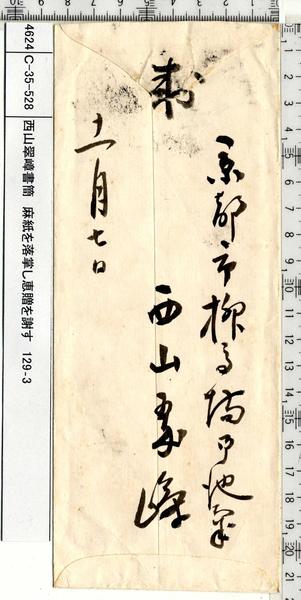 4624 C-35-528 西山翠嶂書簡 麻紙を落掌し恵贈を謝す 129-3
封
京都市柳馬場御池
西山翠嶂
十一月七日